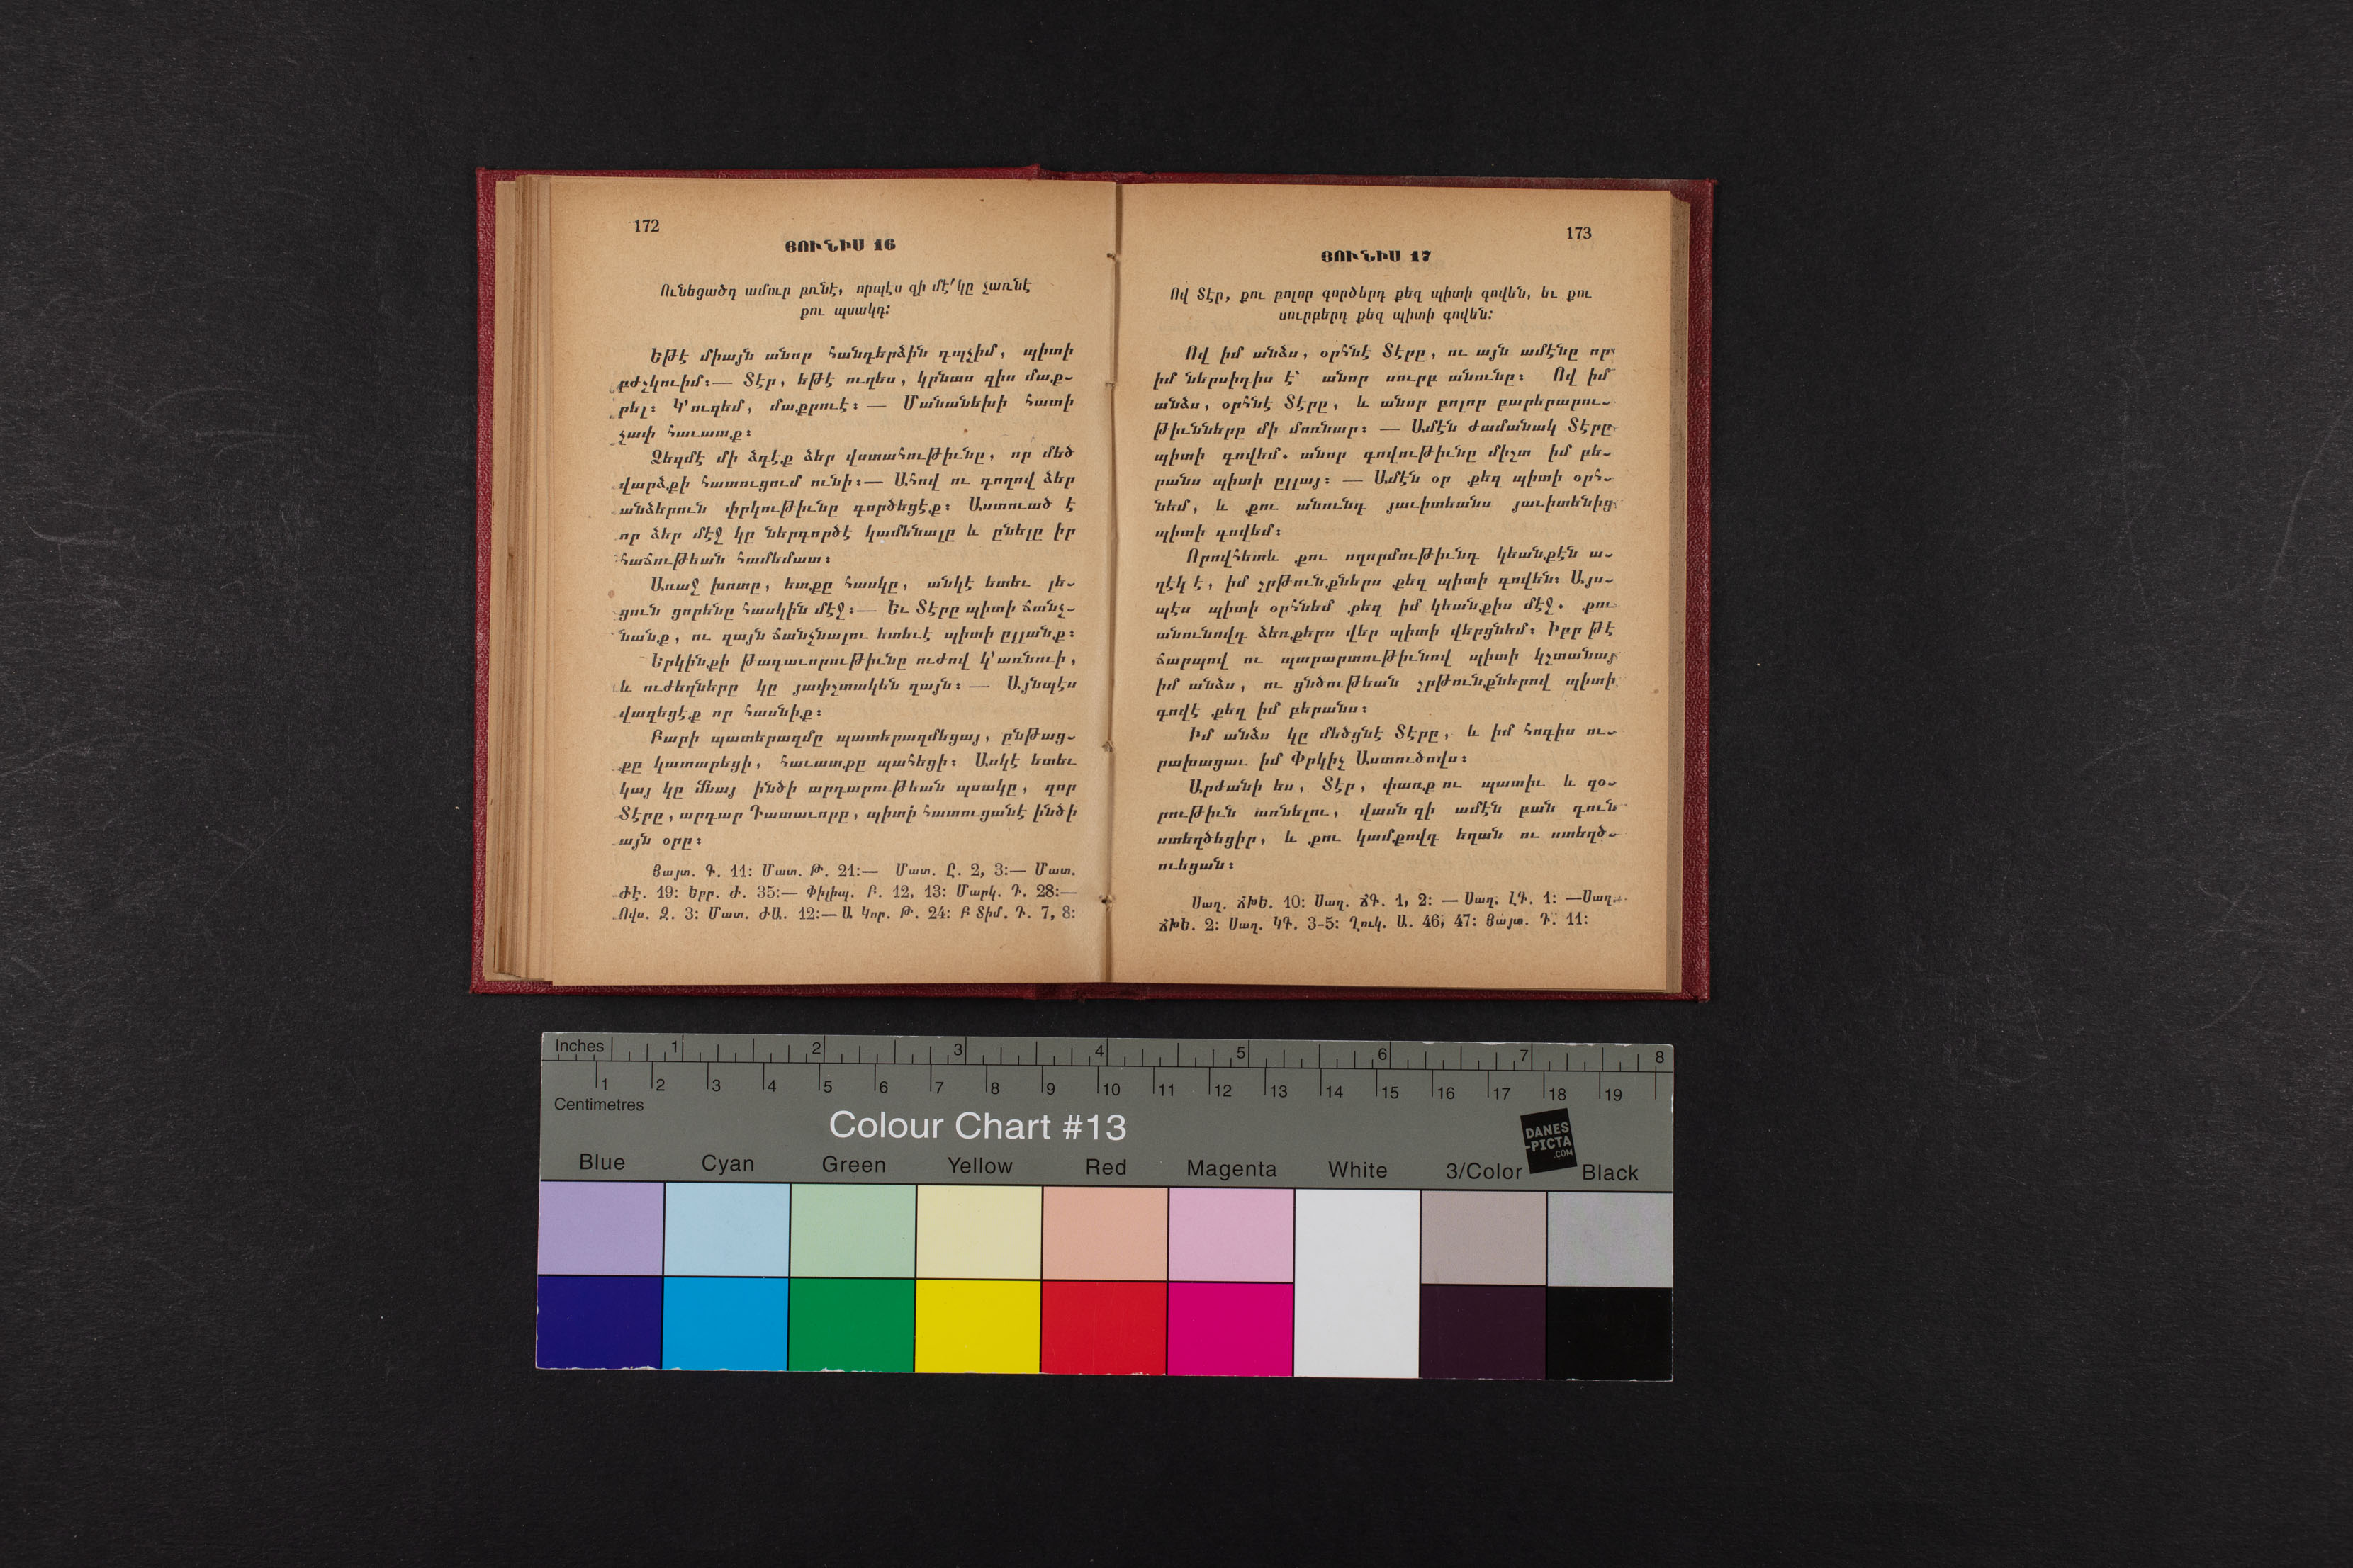 172
ՅՈՒՆԻՍ 16
Ունեցածդ ամուր բռնէ, որպէս զի մէ՛կը չառնէ
քու պսակդ:
Եթէ միայն անոր հանդերձին դպչիմ, պիտի
բժշկուիմ:— Տէր, եթէ ուզես, կրնաս զիս մաք-
րել: Կ՚ուզեմ, մաքրուէ: — Մանանեխի հատի
չափ հաւատք:
Ձեզմէ մի ձգէք ձեր վստահութիւնը, որ մեծ
վարձքի հատուցում ունի:— Ահով ու դողով ձեր
անձերուն փրկութիւնը գործեցէք: Աստուած է
որ ձեր մէջ կը ներգործէ կամենալը և ընելը իր
հաճութեան համեմատ:
Առաջ խոտը, ետքը հասկը, անկէ ետեւ լե-
ցուն ցորենը հասկին մէջ:— Եւ Տէրը պիտի ճանչ-
նանք, ու զայն ճանչնալու ետեւէ պիտի ըլլանք:
Երկինքի թագաւորութիւնը ուժով կ՚առնուի,
և ուժեղները կը յափշտակեն զայն: — Այնպէս
վազեցէք որ հասնիք:
Բարի պատերազմը պատերազմեցայ, ընթաց-
քը կատարեցի, հաւատքը պահեցի: Ասկէ ետեւ
կայ կը մնայ ինծի արդարութեան պսակը, զոր
Տէրը, արդար Դատաւորը, պիտի հատուցանէ ինծի
այն օրը:
Յայտ. Գ. 11: Մատ. Թ. 21:— Մատ. Ը. 2, 3:— Մատ.
ԺԷ. 19: Եբր. Ժ. 35:— Փիլիպ. Բ. 12, 13: Մարկ. Դ. 28:—
Ովս. Զ. 3: Մատ. ԺԱ. 12:— Ա Կոր. Թ. 24: Բ Տիմ. Դ. 7, 8:
173
ՅՈՒՆԻՍ 17
Ով Տէր, քու բոլոր գործերդ քեզ պիտի գովեն, եւ քու
սուրբերդ քեզ պիտի գովեն:
Ով իմ անձս, օրհնէ Տէրը, ու այն ամէնը որ
իմ ներսիդիս է՝ անոր սուրբ անունը: Ով իմ
անձս, օրհնէ Տէրը, և անոր բոլոր բարերարու-
թիւնները մի մոռնար: — Ամէն ժամանակ Տէրը
պիտի գովեմ. անոր գովութիւնը միշտ իմ բե-
րանս պիտի ըլլայ: — Ամէն օր քեզ պիտի օրհ-
նեմ, և քու անունդ յաւիտեանս յաւիտենից
պիտի գովեմ:
Որովհետև քու ողորմութիւնդ կեանքէն ա-
ղէկ է, իմ շրթունքներս քեզ պիտի գովեն: Այս-
պէս պիտի օրհնեմ քեզ իմ կեանքիս մէջ. քու
անունովդ ձեռքերս վեր պիտի վերցնեմ: Իբր թէ
ճարպով ու պարարտութիւնով պիտի կշտանայ
իմ անձս, ու ցնծութեան շրթունքներով պիտի
գովէ քեզ իմ բերանս:
Իմ անձս կը մեծցնէ Տէրը, և իմ հոգիս ու-
րախացաւ իմ Փրկիչ Աստուծովս:
Արժանի ես, Տէր, փառք ու պատիւ և զօ-
րութիւն առնելու, վասն զի ամէն բան դուն
ստեղծեցիր, և քու կամքովդ եղան ու ստեղծ-
ուեցան:
Սաղ. ՃԽԵ. 10: Սաղ. ՃԳ. 1, 2: — Սաղ. ԼԳ. 1: —Սաղ.
ՃԽԵ. 2: Սաղ. ԿԳ. 3-5: Ղուկ. Ա. 46, 47: Յայտ. Դ. 11:
Inches 1 2 3 4 5 6 7 8
1 2 3 4 5 6 7 8 9 10 11 12 13 14 15 16 17 18 19
Centimetres
Colour Chart #13
DANES
-PICTA
.COM
Blue Cyan Green Yellow Red Magenta White 3/Color Black